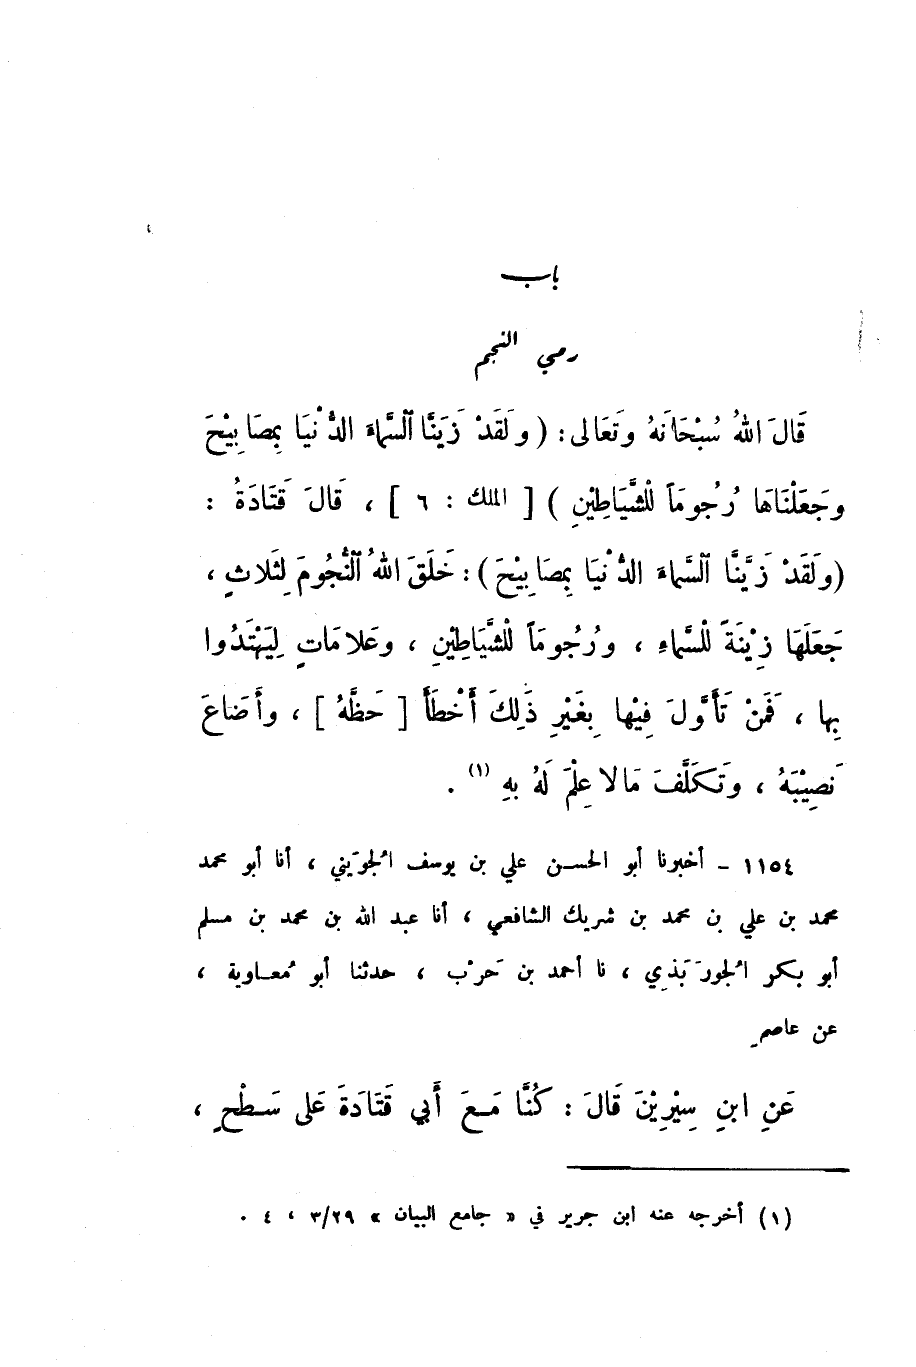 باب
رمي النجم
قَالَ اللهُ سُبْحَانَهُ وتَعَالى : ( ولَقَدْ زَيَّنَّا ٱلسَّمَاءَ الدُّنْيَا بِمَصَابِيْحَ
وجَعَلْنَاهَا رُجُومَاً لْلشَّيَاطِيْنِ ) [ الملك : ٦ ] ، قَالَ قَتَادَةُ :
(ولَقَدْ زَيَّنَّا ٱلسَّمَاءَ الدُّنْيَا بِمَصَابِيْحَ) : خَلَقَ اللهُ ٱلنُّجُومَ لِثَلاثٍ ،
جَعَلَهَا زِيْنَةً لْلسَّمَاءِ ، ورُجُومَاً لْلشَّيَاطِيْنِ ، وعَلامَاتٍ لِيَهْتَدُوا
بِها ، فَمَنْ تَأَوَّلَ فِيْها بِغَيْرِ ذَلِكَ أَخْطَأَ [ حَظَّهُ ] ، وأَضَاعَ
نَصِيْبَهُ ، وتَكَلَّفَ مَالا عِلْمَ لَهُ بهِ (١) .
١١٥٤ - أخبرنا أبو الحسن علي بن يوسف الجُوَيني ، أنا أبو محمد
محمد بن علي بن محمد بن شريك الشافعي ، أنا عبد الله بن محمد بن مسلم
أبو بكر الجُورَبَذي ، نا أحمد بن حَرْب ، حدثنا أبو مُعاوية ،
عن عاصمٍ
عَنِ ابنِ سِيْرِيْنَ قَالَ : كُنَّا مَعَ أَبي قَتَادَةَ عَلى سَطْحٍ ،
(١) أخرجه عنه ابن جرير في « جامع البيان » ٣/٢٩ ، ٤ .